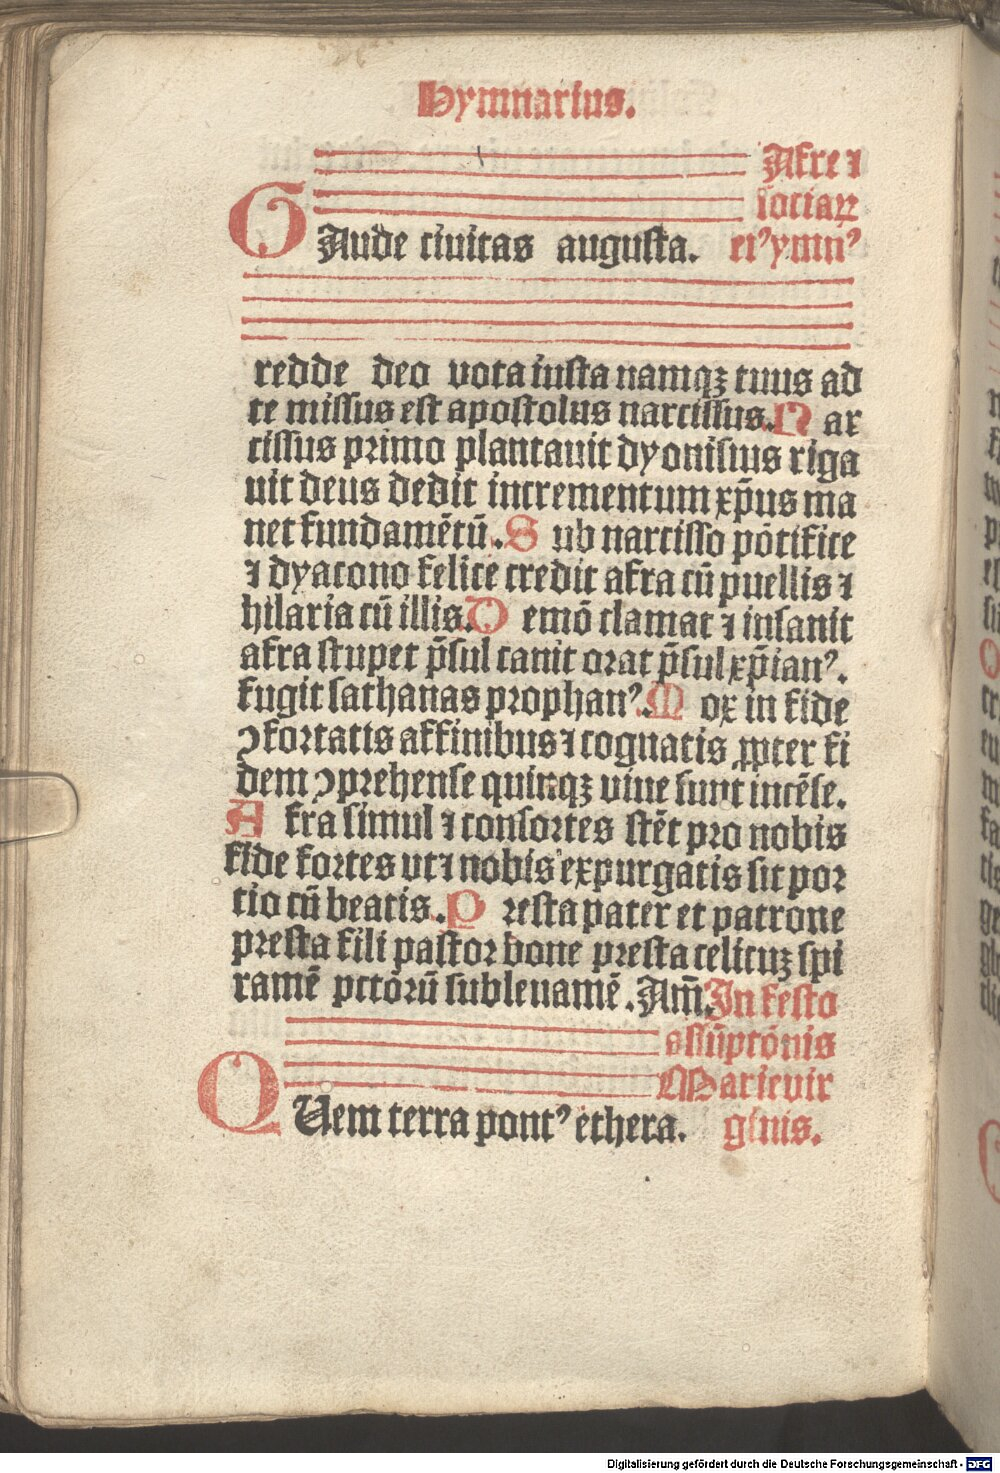 Hymnarius.
Afre ⁊
sociaꝝ
eiꝰ ymnꝰ
GAude ciuitas augusta.
redde deo vota iusta namqꝫ tuus ad
te missus est apostolus narcissus. Nar
cissus primo plantauit dyonisius riga
uit deus dedit incrementum xp̄us ma
net fundamētū. Sub narcisso pōtifice
⁊ dyacono felice credit afra cū puellis ⁊
hilaria cū illis. Demō clamat ⁊ insanit
afra stupet p̄sul canit orat p̄sul xp̄ianꝰ.
fugit sathanas prophanꝰ. Mox in fide
ꝯfortatis affinibus ⁊ cognatis ꝓpter fi
dem ꝯprehense quinqꝫ viue sunt incēse.
Afra simul ⁊ consortes stēt pro nobis
fide fortes vt ⁊ nobis expurgatis sit por
tio cū beatis. Presta pater et patrone
presta fili pastor bone presta celicuꝫ spi
ramē pctōrū subleuamē. Am̄. In festo
assūptōnis
Marie vir
ginis.
QUem terra pontꝰ ethera.
Digitalisierung gefördert durch die Deutsche Forschungsgemeinschaft - DFG